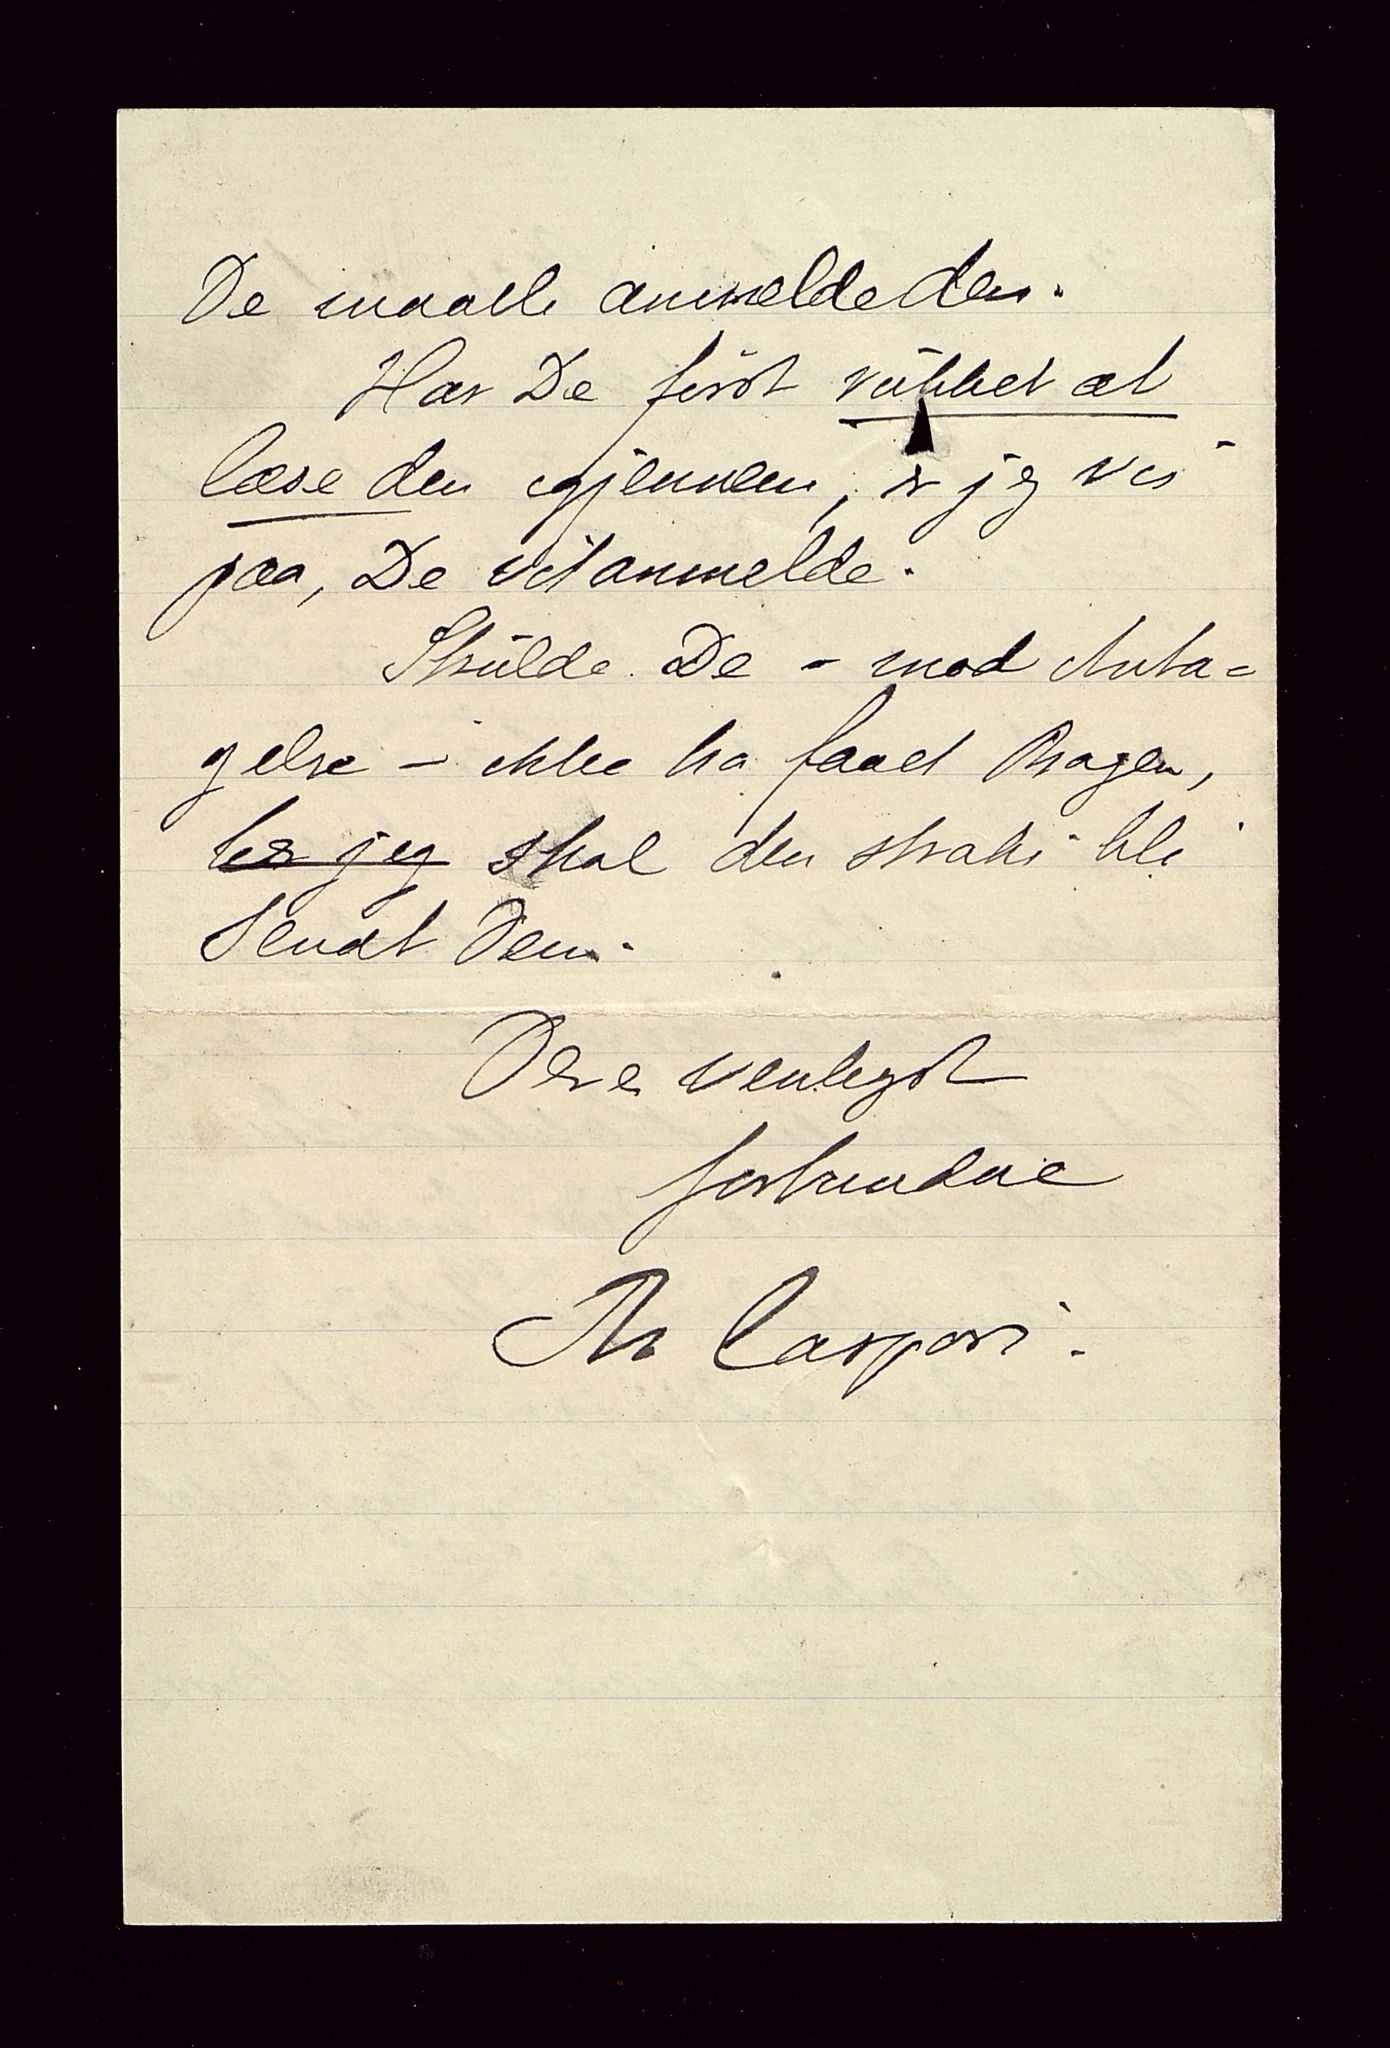 De maatte anmelde den.
Har De först rukket at
læse den igjennem, er jeg vis
paa, De vil anmelde.
Skulde De - mod Anta=
gelse - ikke ha faaet Bogen,
ber jeg skal den straks bli
sendt Dem.
Deres venligst
forbundne
Th Caspari.